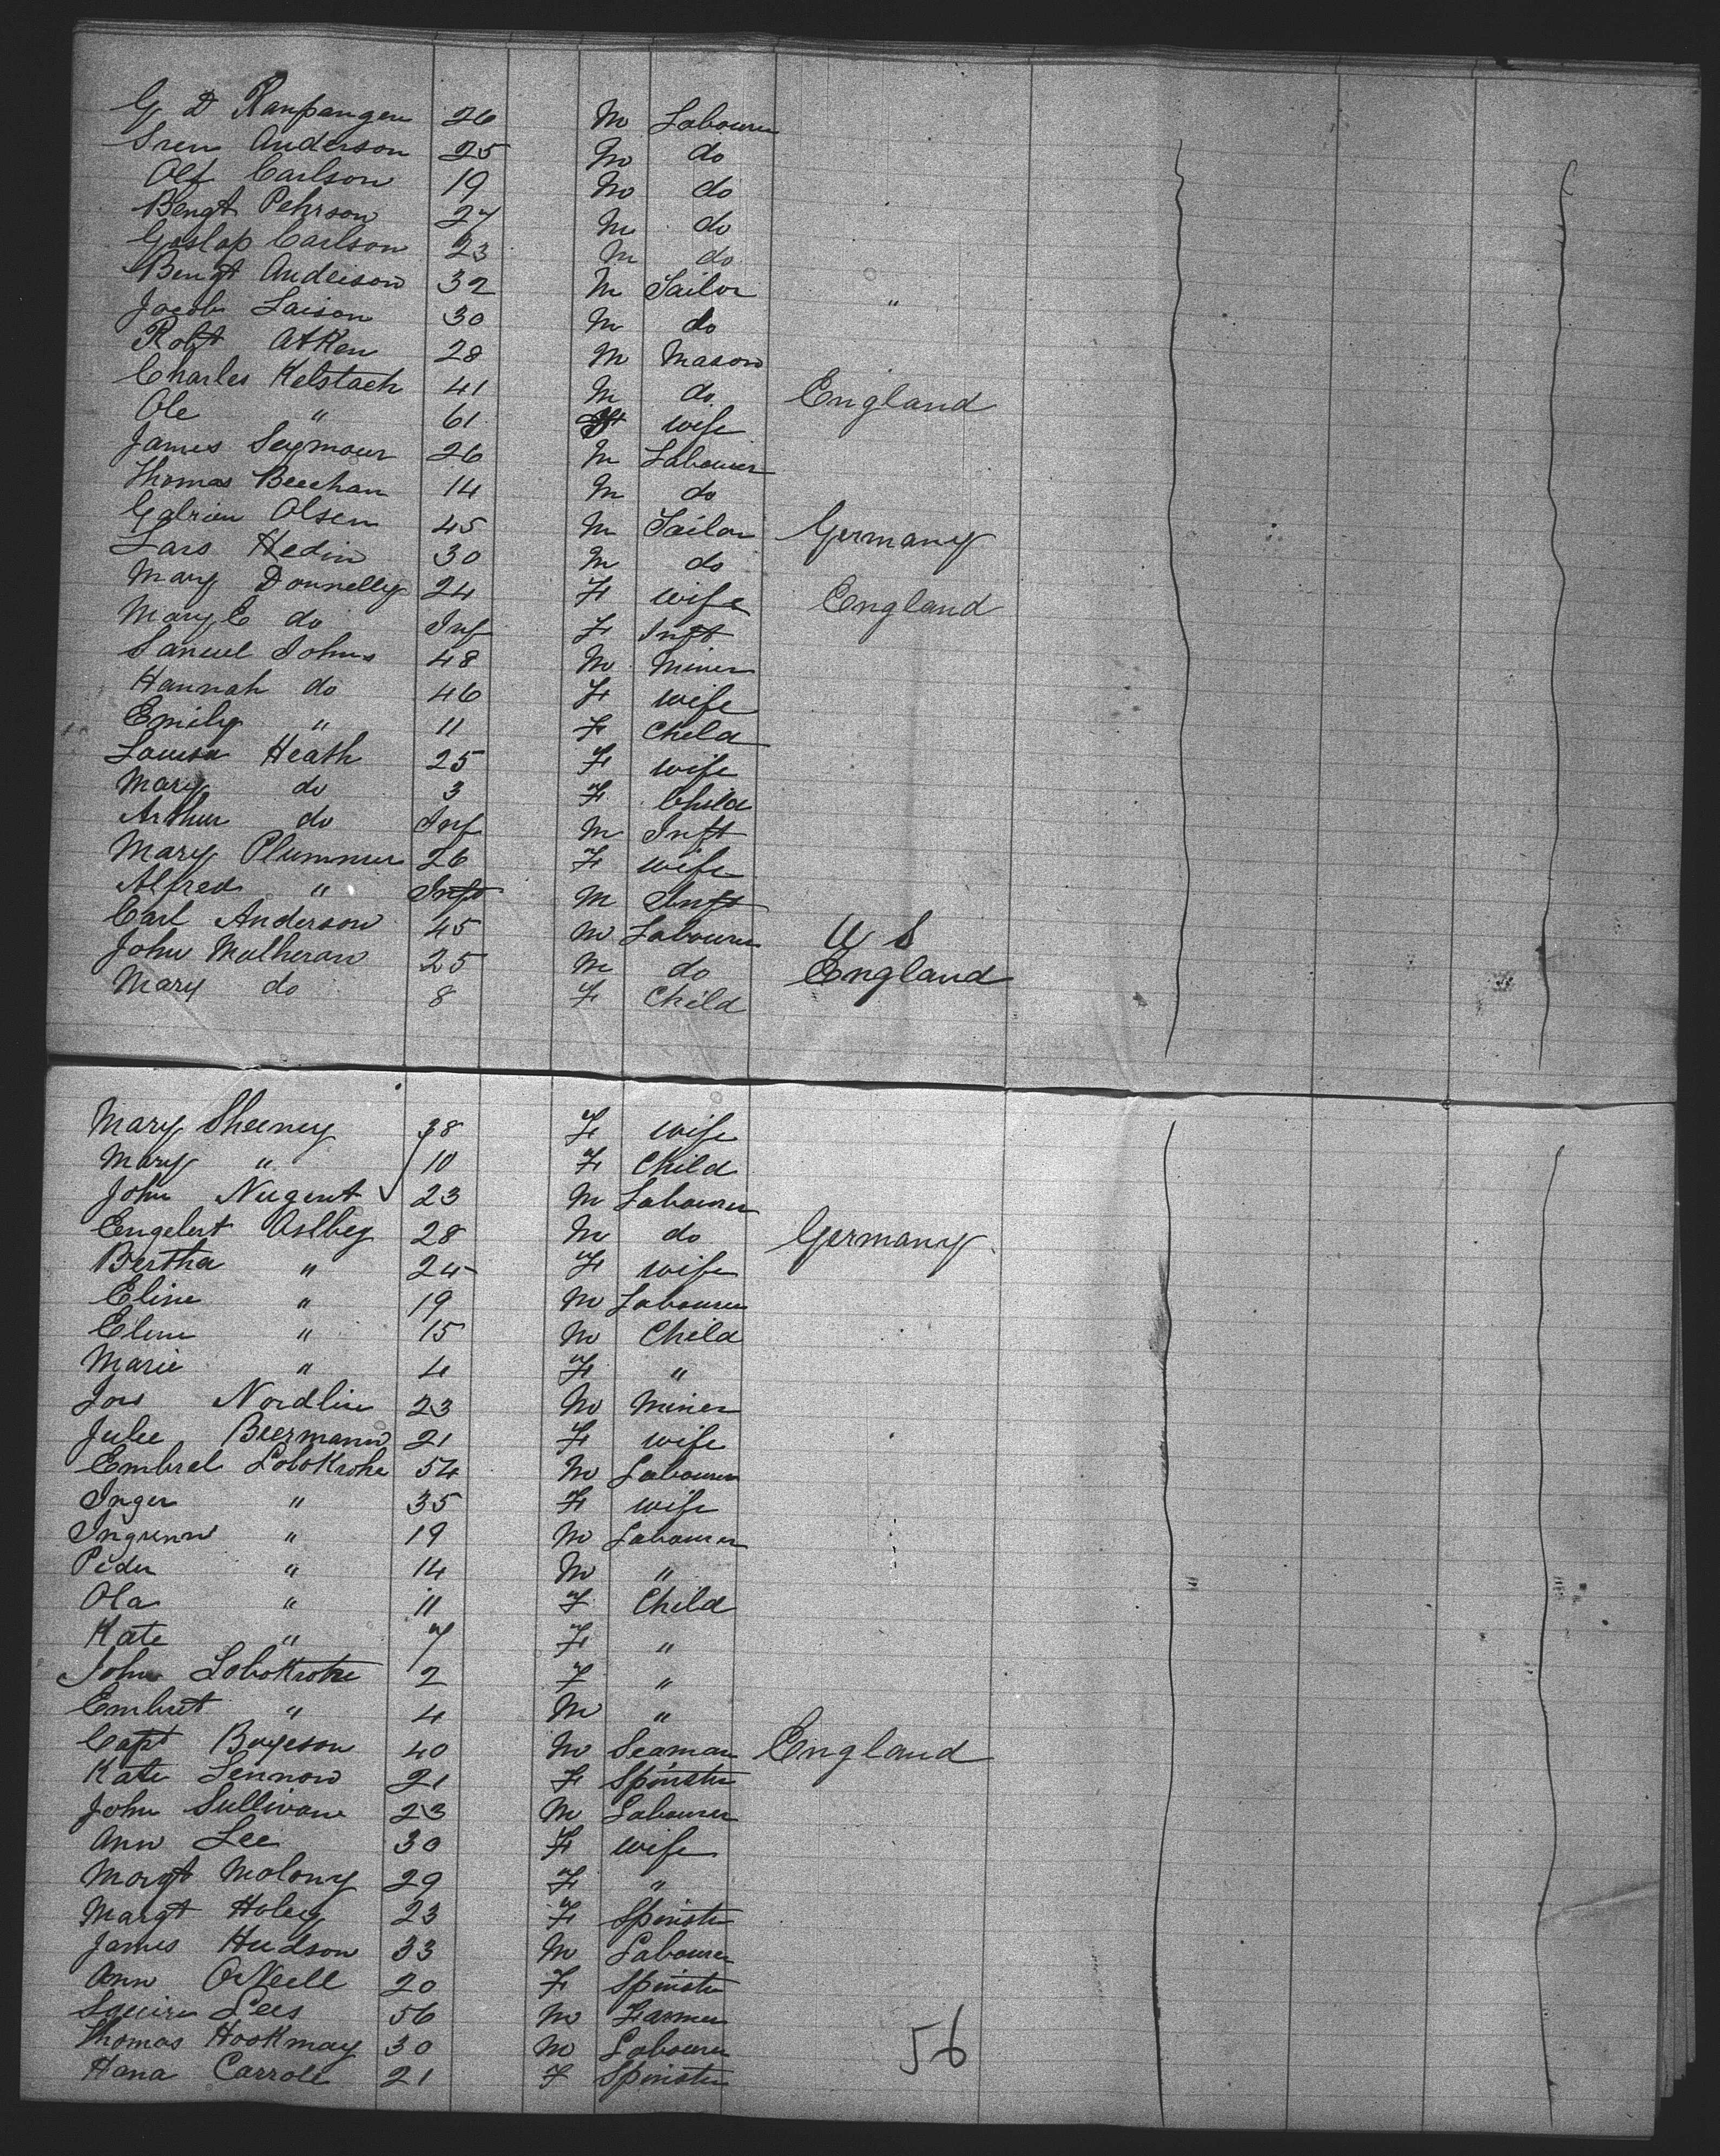 G D Ranpangen 26 M Labourer
Sren Anderson 25 M do
Olf Carlson 19 M do
Bengt Pehrson 27 M do
Goslap Carlson 23 M do
Bengt Anderson 32 M Sailor "
Jacob Laison 30 M do
Robt Atken 28 M Mason
Charles Kelstach 41 M do England
Ole " 61 F wife
James Seymour 26 M Labourer
Thomas Beechan 14 M do
Galrien Olsen 45 M Sailor Germany
Lars Hedin 30 M do
Mary Donnelly 24 F wife England
Mary E do Inf F Inft
Samuel Johns 48 M Miner
Hannah do 46 F wife
Emily " 11 F Child
Louisa Heath 25 F wife
Mary do 3 F Child
Arthur do Inf M Inft
Mary Plummer 26 F wife
Alfred " Inft M Inft
Carl Anderson 45 M Labourer U S
John Mulheran 25 M do England
Mary do 8 F Child
Mary Sheeney 38 F wife
Mary " 10 F Child
John Nugent 23 M Labourer
Engelert Aslbeg 28 M do Germany
Bertha " 24 F wife
Eline " 19 M Labourer
Eline " 15 M Child
Marie " 4 F "
Jos Nordlin 23 M Miner
Julie Beermann 21 F wife
Embrel Lobokroke 54 M Labourer
Inger " 35 F wife
Ingrenn " 19 M Labourer
Peder " 14 M "
Ola " 11 F Child
Kate " 7 F "
John Lobokroke 2 F "
Embret " 4 M "
Capt Boyeson 40 M Seaman England
Kate Lennow 21 F Spinster
John Sullivan 23 M Labourer
Ann Lee 30 F wife
Margt Molony 29 F "
Margt Holey 23 F Spinster
James Hudson 33 M Labourer
Ann O'Neill 20 F Spinster
Squire Lees 56 M Farmer
Thomas Hookmay 30 M Labourer
Hana Carroll 21 F Spinster
56